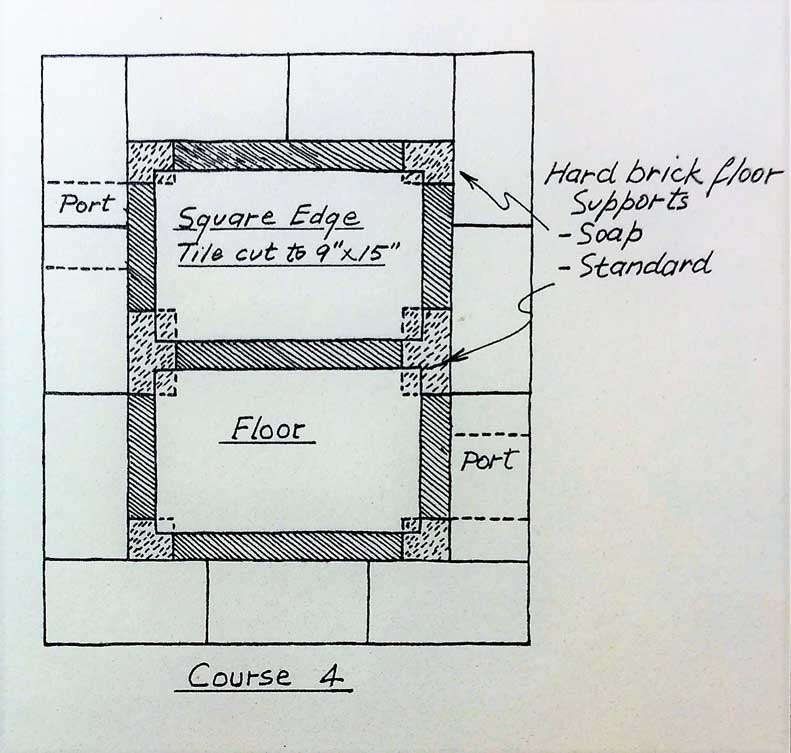 Hard brick floor
Supports
- Soap
- Standard
Port
Square Edge
Tile cut to 9"x15"
Floor
Port
Course 4